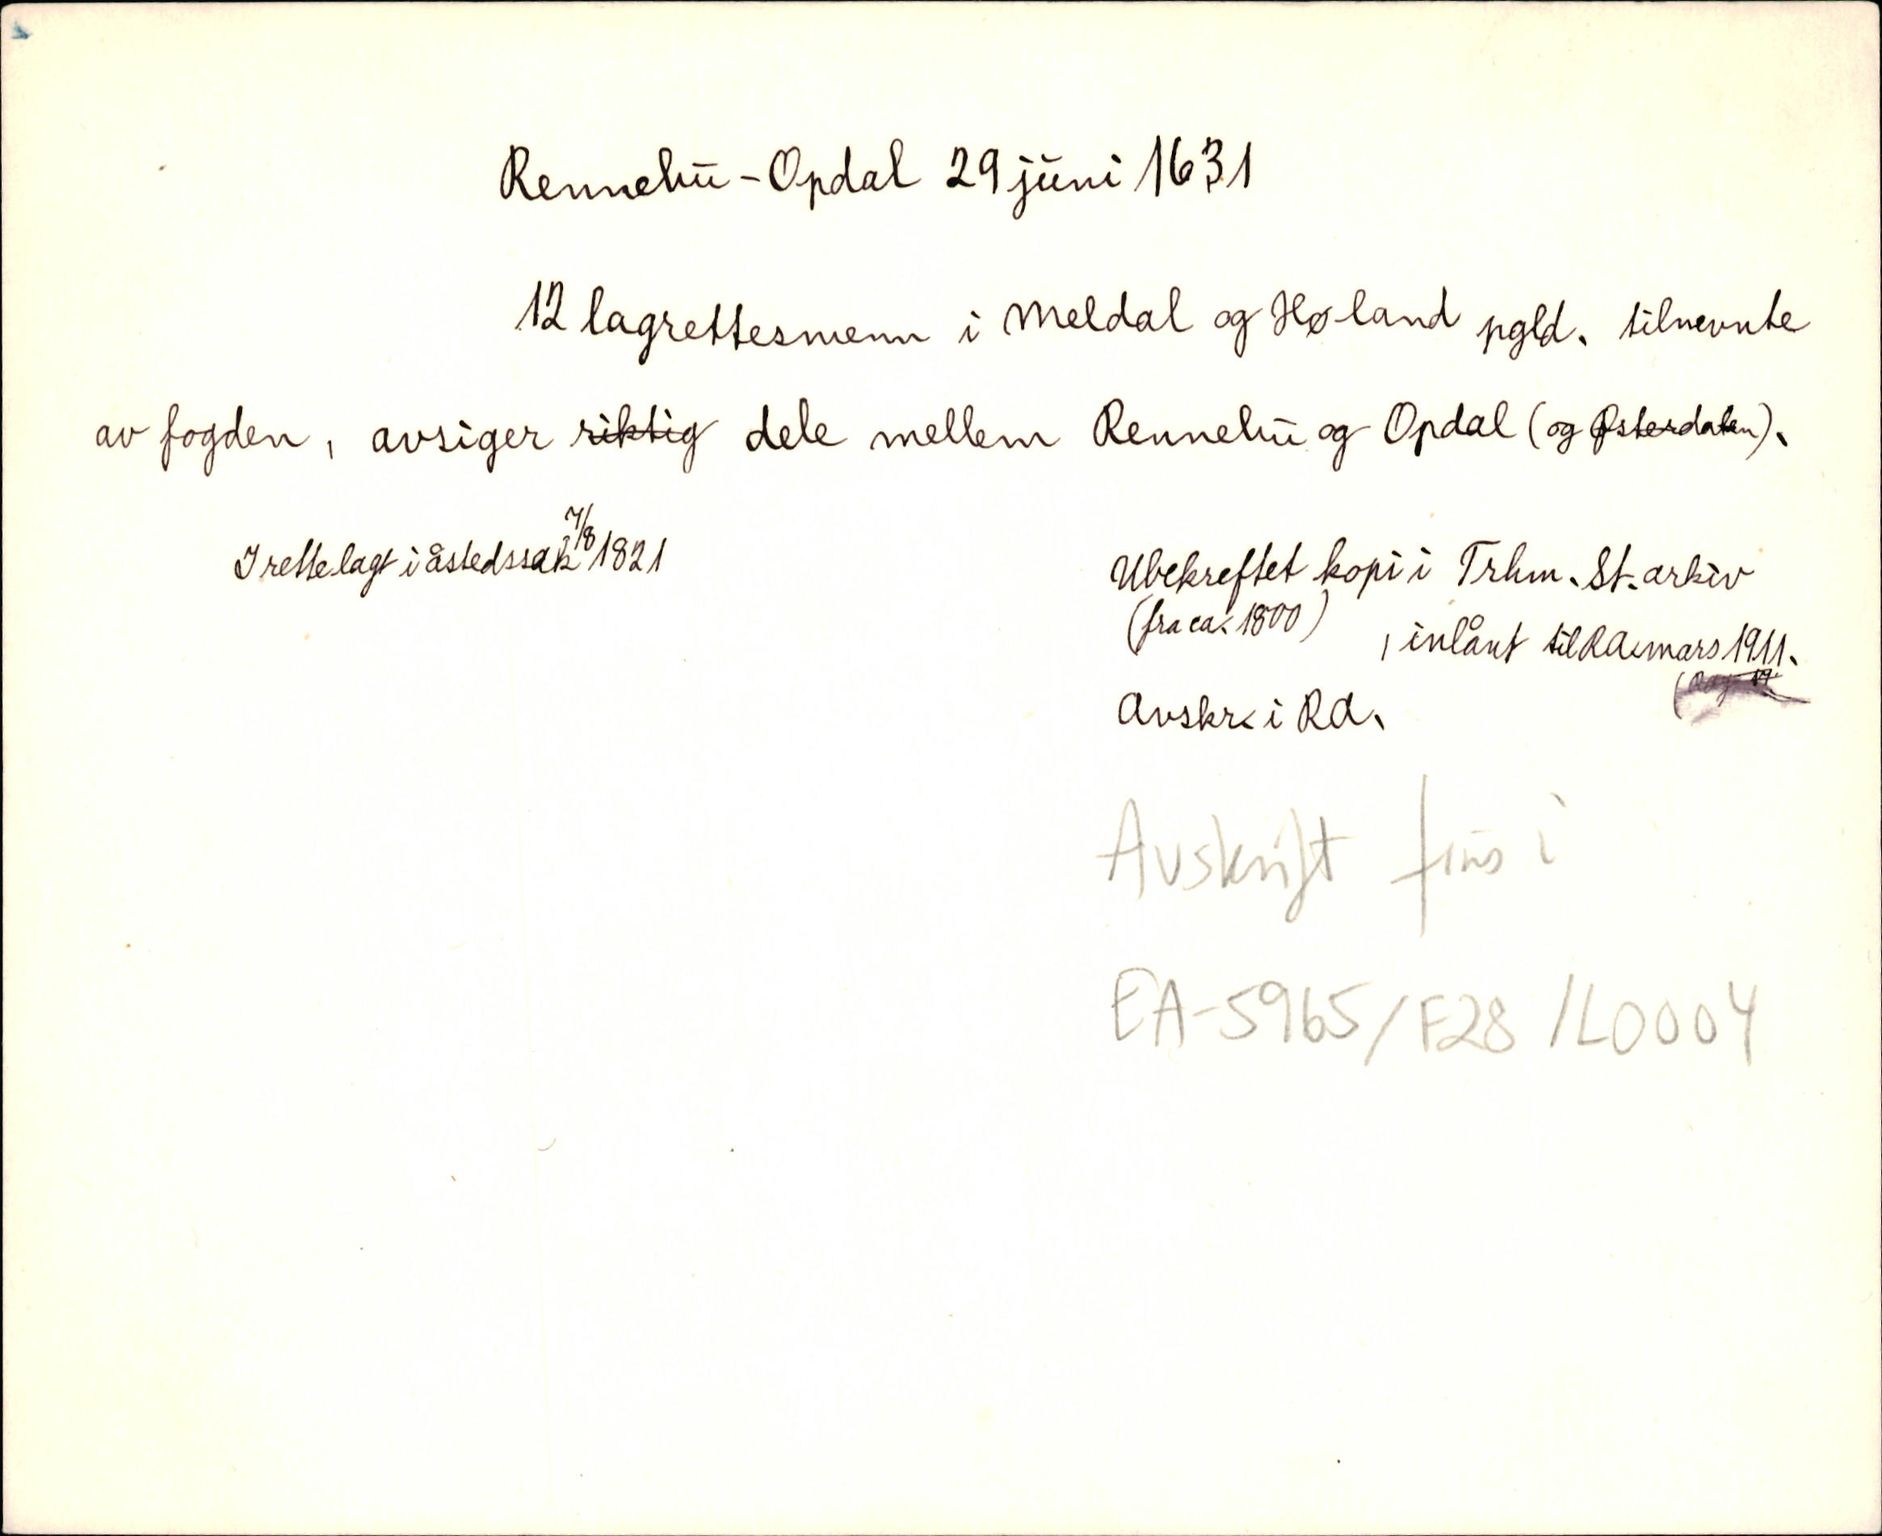 Rennebū - Opdal 29 jūni 1631
12 lagrettesmenn i Meldal og Høland pgld. tilnevnte
av fogden, avsiger riktig dele mellem Rennebū og Opdal (og Østerdalen).
I rettelagt i åstedssak 7/8 1821
Ubekreftet kopi i Trhm. St. arkiv
(fra ca. 1800) , inlånt til RA. mars 1911.
Avskr. i RA.
Avskrift fins i
EA-5965/F28/L0004